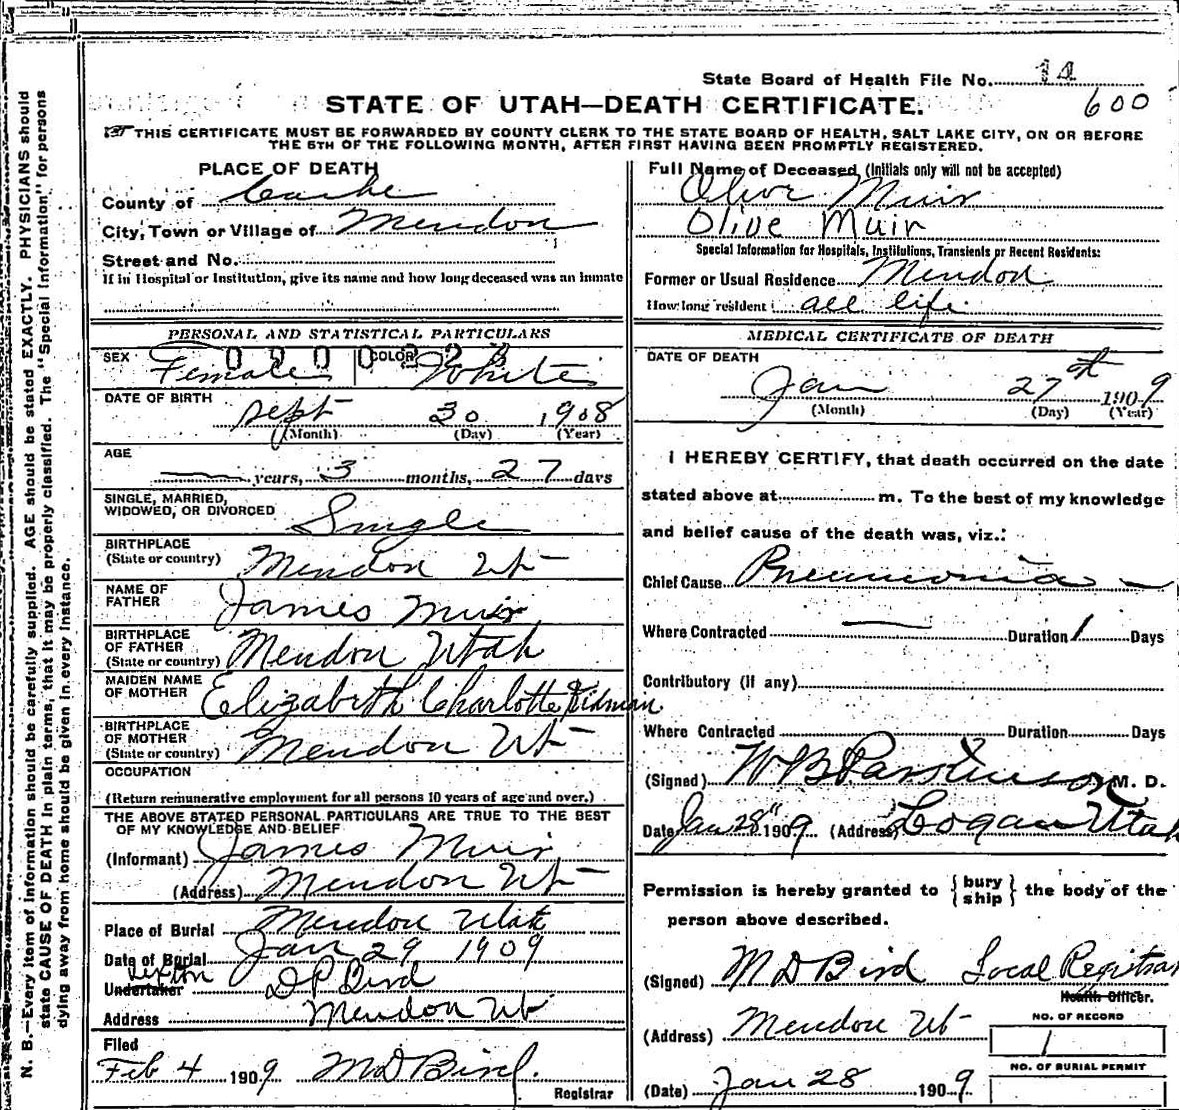 State Board of Health File No. 14
600
STATE OF UTAH—DEATH CERTIFICATE.
THIS CERTIFICATE MUST BE FORWARDED BY COUNTY CLERK TO THE STATE BOARD OF HEALTH, SALT LAKE CITY, ON OR BEFORE
THE 5TH OF THE FOLLOWING MONTH, AFTER FIRST HAVING BEEN PROMPTLY REGISTERED.
N. B.—Every item of information should be carefully supplied. AGE should be stated EXACTLY. PHYSICIANS should
state CAUSE OF DEATH in plain terms, that it may be properly classified. The "Special Information" for persons
dying away from home should be given in every instance.
PLACE OF DEATH
County of Cache
City, Town or Village of Mendon
Street and No.
If in Hospital or Institution, give its name and how long deceased was an inmate
PERSONAL AND STATISTICAL PARTICULARS
SEX Female COLOR White
DATE OF BIRTH
Sept 30 1908
(Month) (Day) (Year)
AGE
— years, 3 months, 27 days
SINGLE, MARRIED,
WIDOWED, OR DIVORCED Single
BIRTHPLACE
(State or country) Mendon Ut
NAME OF
FATHER James Muir
BIRTHPLACE
OF FATHER
(State or country) Mendon Utah
MAIDEN NAME
OF MOTHER Elizabeth Charlotte
BIRTHPLACE
OF MOTHER
(State or country) Mendon Ut
OCCUPATION
(Return remunerative employment for all persons 10 years of age and over.)
THE ABOVE STATED PERSONAL PARTICULARS ARE TRUE TO THE BEST
OF MY KNOWLEDGE AND BELIEF
(Informant) James Muir
(Address) Mendon Ut
Place of Burial Mendon Utah
Date of Burial Jan 29 1909
Sexton
Undertaker D P Bird
Address Mendon Ut
Filed
Feb 4 1909 M D Bird
Registrar
Full Name of Deceased (Initials only will not be accepted)
Olive Muir
Olive Muir
Special Information for Hospitals, Institutions, Transients or Recent Residents:
Former or Usual Residence Mendon
How long resident all life
MEDICAL CERTIFICATE OF DEATH
DATE OF DEATH
Jan 27th 1909
(Month) (Day) (Year)
I HEREBY CERTIFY, that death occurred on the date
stated above at m. To the best of my knowledge
and belief cause of the death was, viz.:
Chief Cause Pneumonia —
Where Contracted — Duration 1 Days
Contributory (if any)
Where Contracted Duration Days
(Signed) W B Parkinson M. D.
Date Jan 28" 1909 (Address) Logan Utah
Permission is hereby granted to { bury
ship } the body of the
person above described.
(Signed) M D Bird Local Registrar
Health Officer.
(Address) Mendon Ut
NO. OF RECORD
1
NO. OF BURIAL PERMIT
(Date) Jan 28 1909